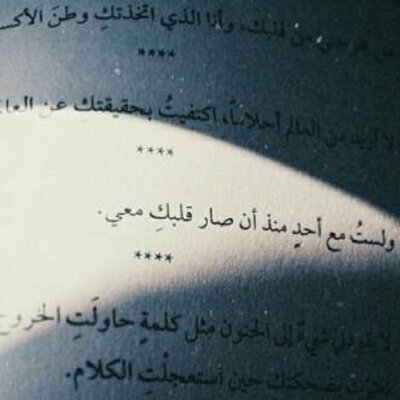 من فلك، وأنا الذي اتخذتكِ وطنَ
****
لا أريد من العالم أحلاماً، اكتفيتُ بحقيقتكِ عن
****
ولستُ مع أحدٍ منذ أن صار قلبكِ معي.
****
شيءٌ إلى الجنون مثل كلمةٍ حاولَتِ الخروج
بضحكتك حين استعجلتِ الكلام.